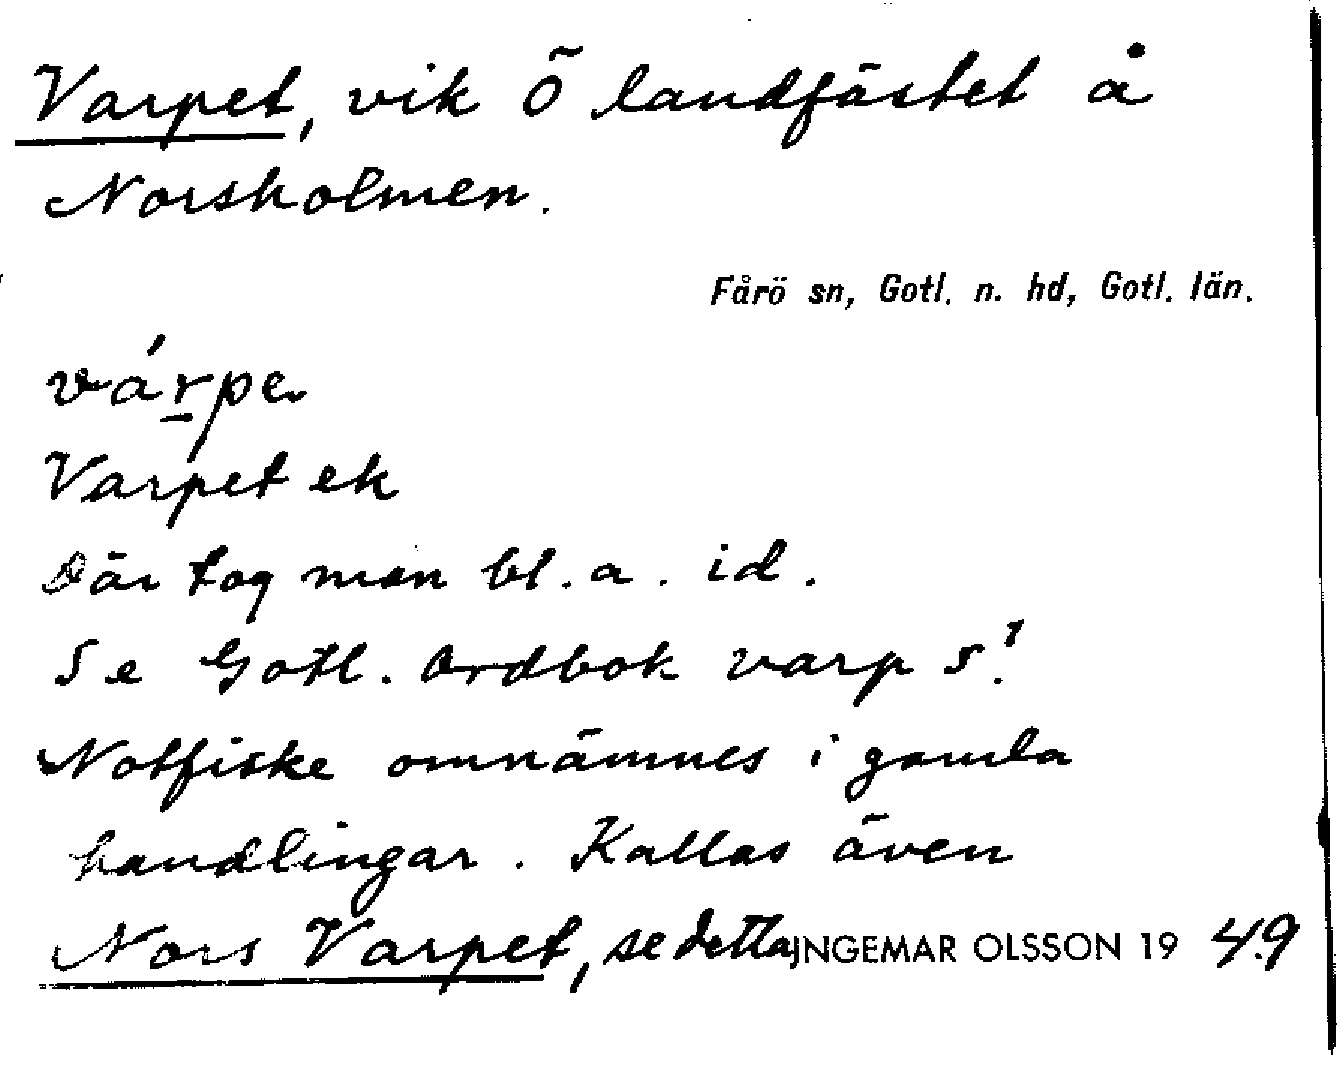 Varpet, vik Ö landfästet å
Norsholmen.
Fårö sn, Gotl. n. hd, Gotl. län.
várpe
Varpet ek
Där tog man bl. a. id.
Se Gotl. Ordbok varp s.1
Notfiske omnämnes i gamla
handlingar. Kallas även
Nors Varpet, se detta INGEMAR OLSSON 1949